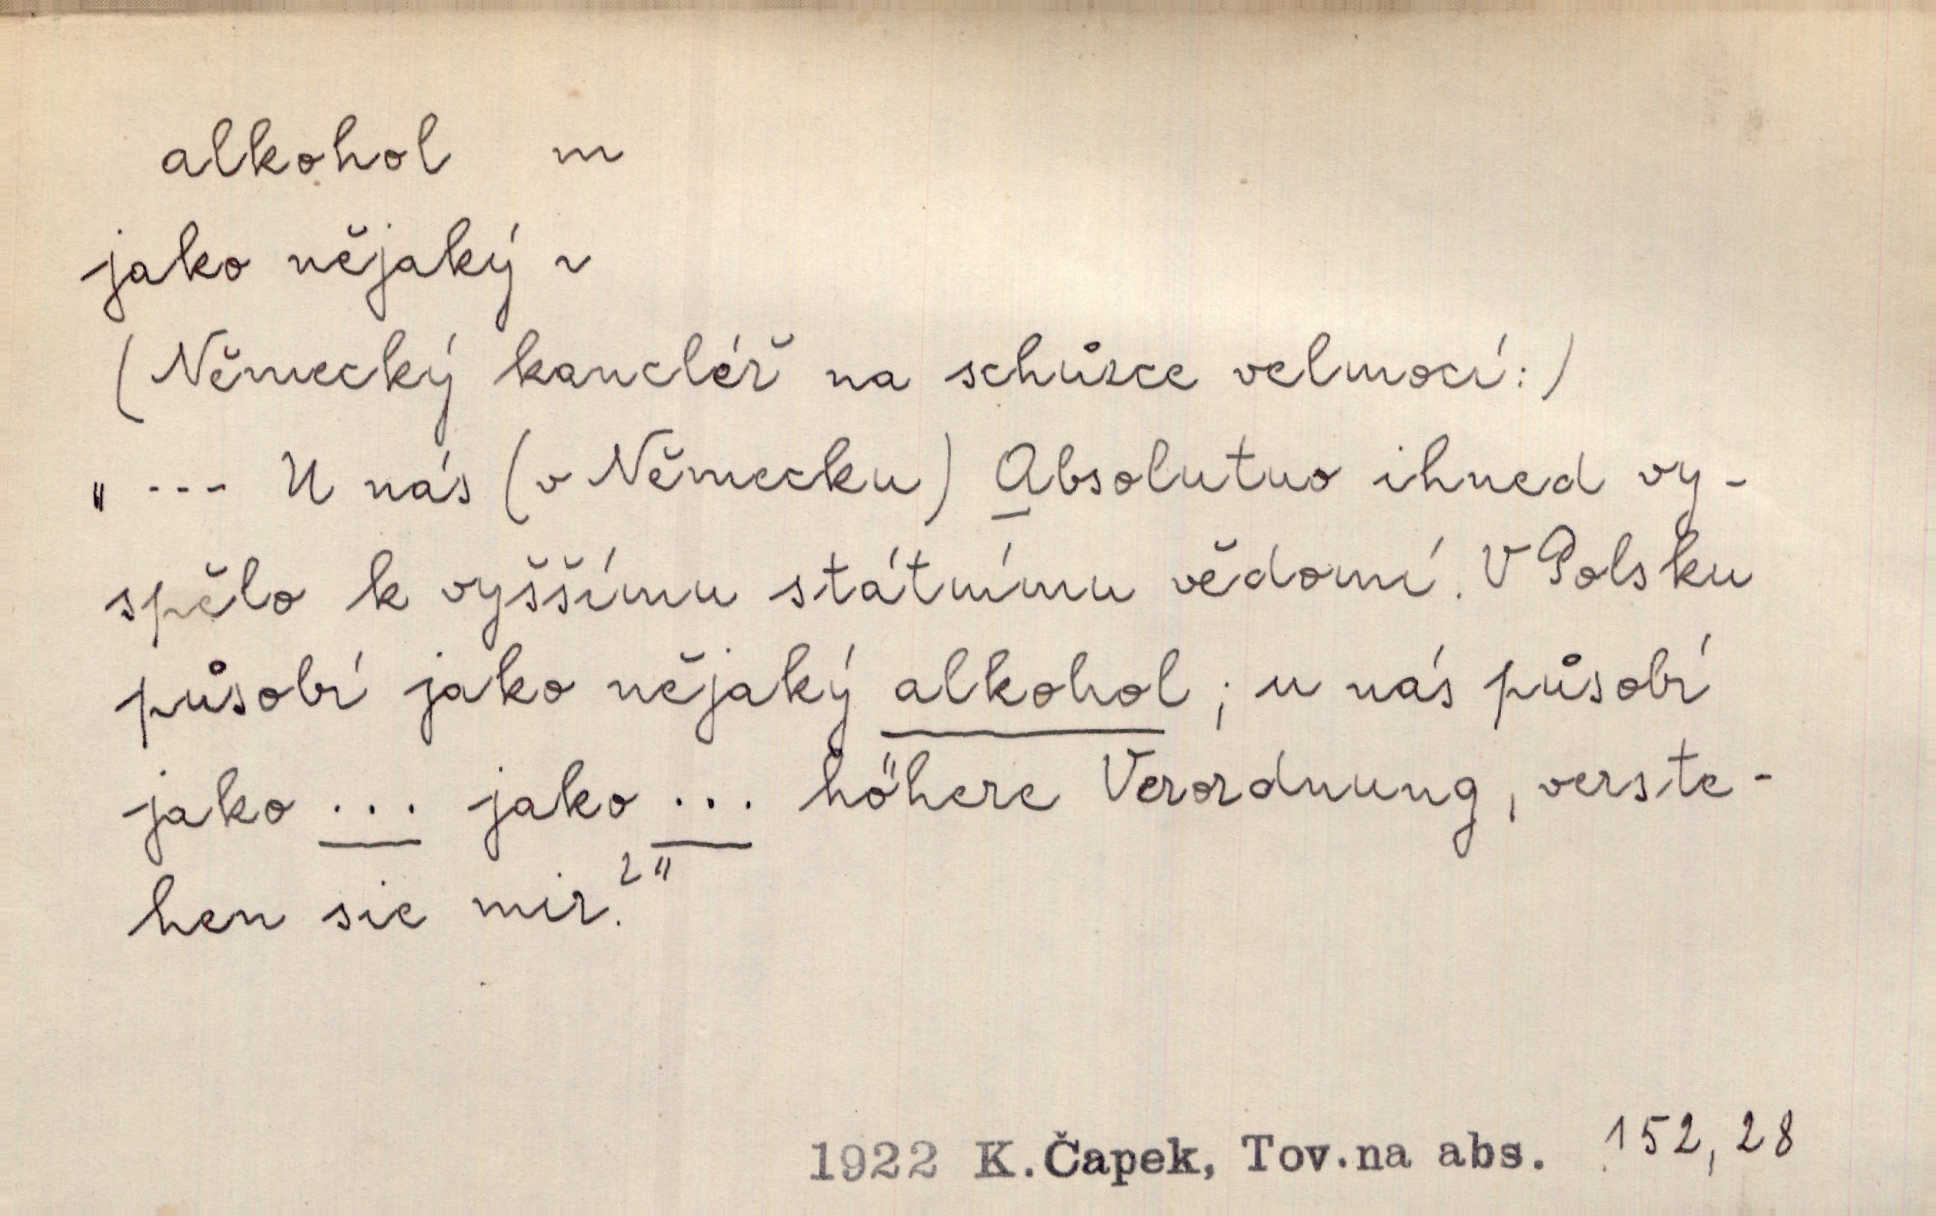 alkohol m
jako nějaký ~
(Německý kancléř na schůzce velmocí:)
„ --- U nás (v Německu) Absolutno ihned vy-
spělo k vyššímu státnímu vědomí. V Polsku
působí jako nějaký alkohol; u nás působí
jako ... jako ... höhere Verordnung, verste-
hen sie mir?"
1922 K.Čapek, Tov.na abs. 152,28